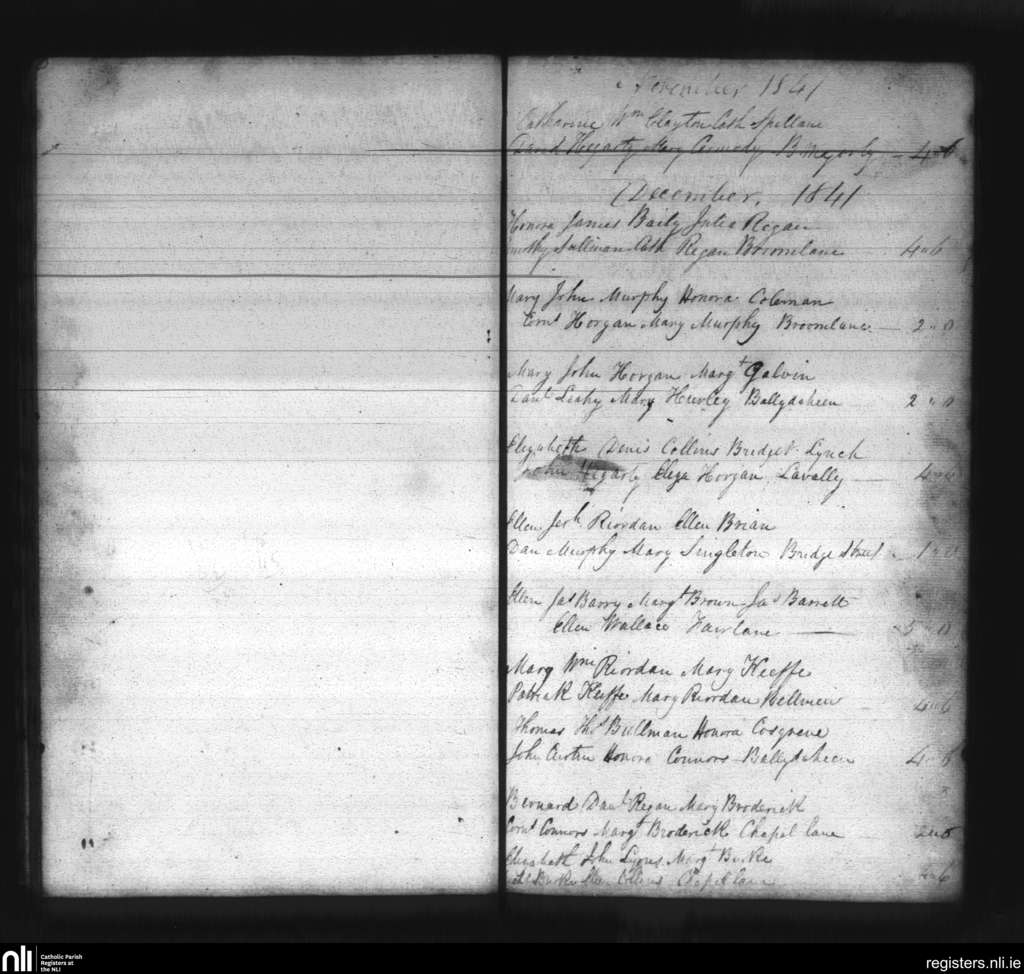 November 1841
Catharine Wm Clayton Cath Spellane
David Hegarty Mary Cormody B 4 " 6
December, 1841
Honora James Baily Julia Regan
Sullivan Cath Regan Broomlane 4 " 6
Mary John Murphy Honora Coleman
Corns Horgan Mary Murphy Broomlane 2 " 0
Mary John Horgan Margt Galvin
Danl Leahy Mary Hurley Ballydaheen 2 " 0
Elizabeth Denis Collins Bridget Lynch
John Hegarty Eliza Horgan Lavally
Ellen Jerh Riordan Ellen Brian
Dan Murphy Mary Singleton Bridge Street 1 " 0
Ellen Jas Barry Margt Brown Jas Barrett
Ellen Wallace Fairlane 5 " 0
Mary Wm Riordan Mary Keeffe
Patrick Keeffe Mary Riordan Bellview 4 " 6
Thomas Thos Bullman Honora Cosgreve
John Honora Connors Ballydaheen 4 " 6
Bernard Danl Regan Mary Broderick
Corns Connors Margt Broderick Chapel lane
Elizabeth John Lyons Margt Burke
Burke Collins Chapel lane
nli Catholic Parish
Registers at
the NLI
registers.nli.ie